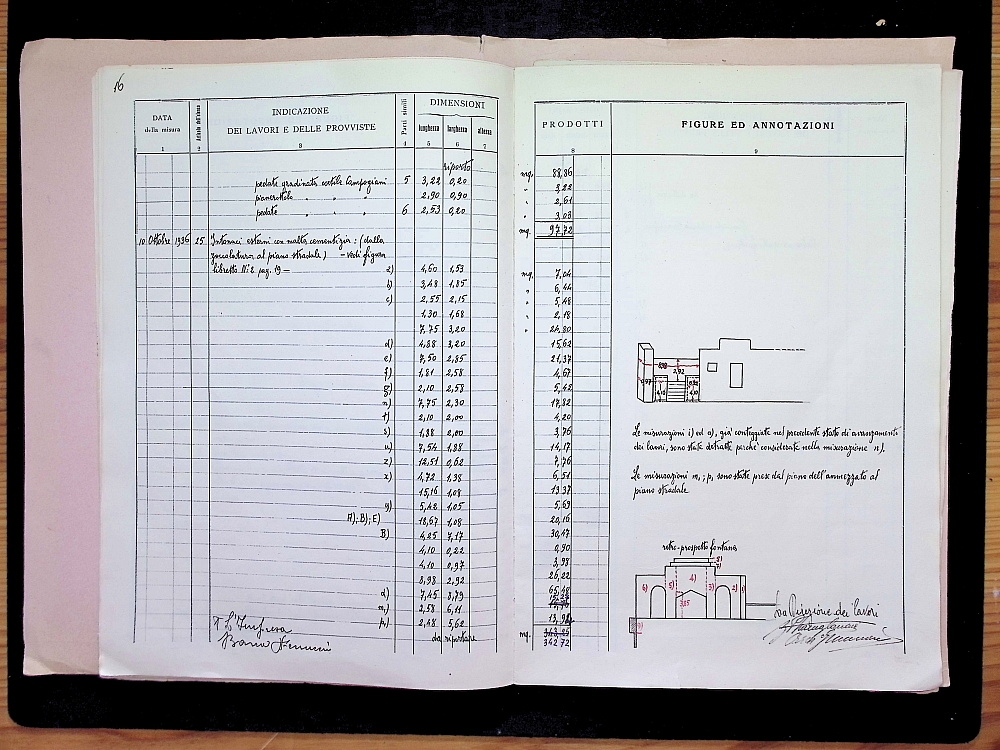 16
DATA
della misura
INDICAZIONE
DEI LAVORI E DELLE PROVVISTE
Parti simili
DIMENSIONI
lunghezza larghezza altezza
1 2 3 4 5 6 7
riporto
pedate gradinata cortile Campogiani 5 3,22 0,20
pianerottolo " " " 2,90 0,90
pedate " " " 6 2,53 0,20
10 Ottobre 1936 25 Intonaci esterni con malta cementizia: (dalla
zoccolatura al piano stradale) – vedi figura
libretto N. 2 pag. 19 – a) 4,60 1,53
b) 3,48 1,85
c) 2,55 2,15
1,30 1,68
7,75 3,20
d) 4,88 3,20
e) 7,50 2,85
f) 1,81 2,58
g) 2,10 2,58
n) 7,75 2,30
2,10 2,00
s) 1,88 2,00
u) 7,54 1,88
z) 12,51 0,62
x) 4,72 1,38
15,16 1,08
y) 5,42 1,05
A); B); E) 18,67 1,08
B) 4,25 7,17
4,10 0,22
4,10 0,97
8,98 2,92
d) 7,45 8,79
m) 2,58 6,11
p) 2,48 5,62
da riportare
L'Impresa
PRODOTTI
FIGURE ED ANNOTAZIONI
8 9
mq. 88,86
" 3,22
" 2,61
" 3,03
mq. 97,72
mq. 7,04
" 6,44
" 5,48
" 2,18
" 24,80
15,62
21,37
4,67
5,42
17,82
4,20
3,76
14,17
7,76
6,51
16,37
5,69
20,16
30,47
0,90
3,98
26,22
65,48
13,94
mq. 342,72
2,92
Le misurazioni i) ed o), già conteggiate nel precedente stato di avanzamento
dei lavori, sono state detratte perchè considerate nella misurazione n).
Le misurazioni m, ; p, sono state prese dal piano dell'ammezzato al
piano stradale
retro-prospetto fontana
6) 5) 4) 3) 2)
3,85
La Direzione dei lavori